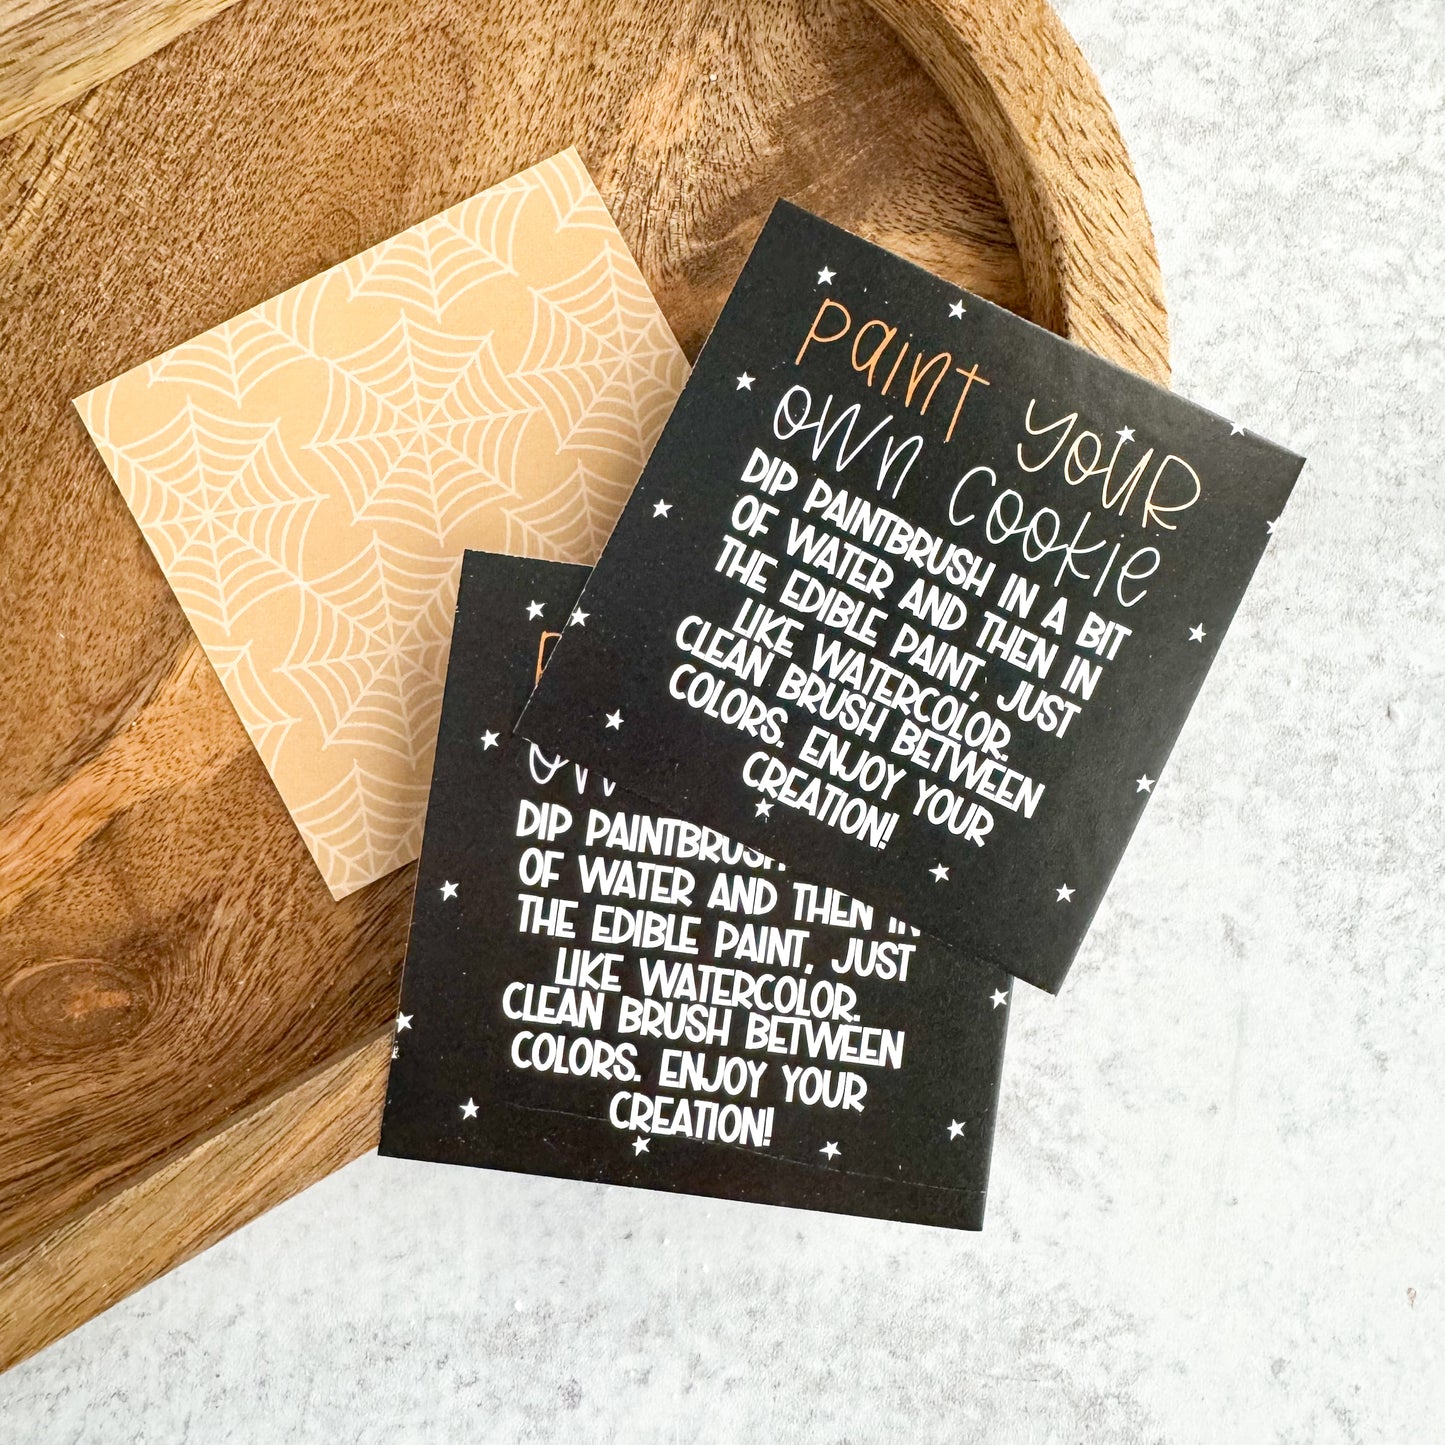 paint your
own cookie
DIP PAINTBRUSH IN A BIT
OF WATER AND THEN IN
THE EDIBLE PAINT, JUST
LIKE WATERCOLOR.
CLEAN BRUSH BETWEEN
COLORS. ENJOY YOUR
CREATION!
DIP PAINTBRUSH
OF WATER AND THEN IN
THE EDIBLE PAINT, JUST
LIKE WATERCOLOR.
CLEAN BRUSH BETWEEN
COLORS. ENJOY YOUR
CREATION!